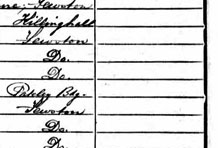 Fewston
Killinghall
Fewston
Do.
Do.
Pateley Bdg.
Fewston
Do.
Do.